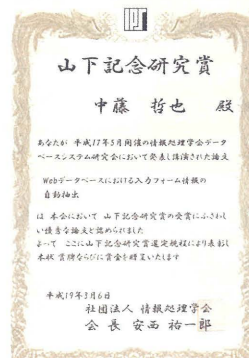 山下記念研究賞
中藤 哲也 殿
あなたが 平成17年5月開催の情報処理学会データ
ベースシステム研究会において発表し講演された論文
Webデータベースにおける入力フォーム情報の
自動抽出
は 本会において 山下記念研究賞の受賞にふさわし
い優秀な論文と認められました
よって ここに山下記念研究賞選定規程により表彰し
本状 賞牌ならびに賞金を贈呈いたします
平成19年3月6日
社団法人 情報処理学会
会長 安西 祐一郎